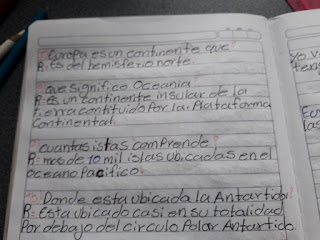 Europa es un continente que?
R= Es del hemisferio norte.
que significo Oceania
R= es un continente insular de la
tierra contituido Por la Plataforma
Continental.
? cuantas istas comprende?
R= mas de 10 mil islas ubicadas en el
oceano Pacifico.
10) Donde esta ubicada la Antartida?
R= Esta ubicado casi en su totalidad
Por debajo del circulo Polar Antartido.
yo v